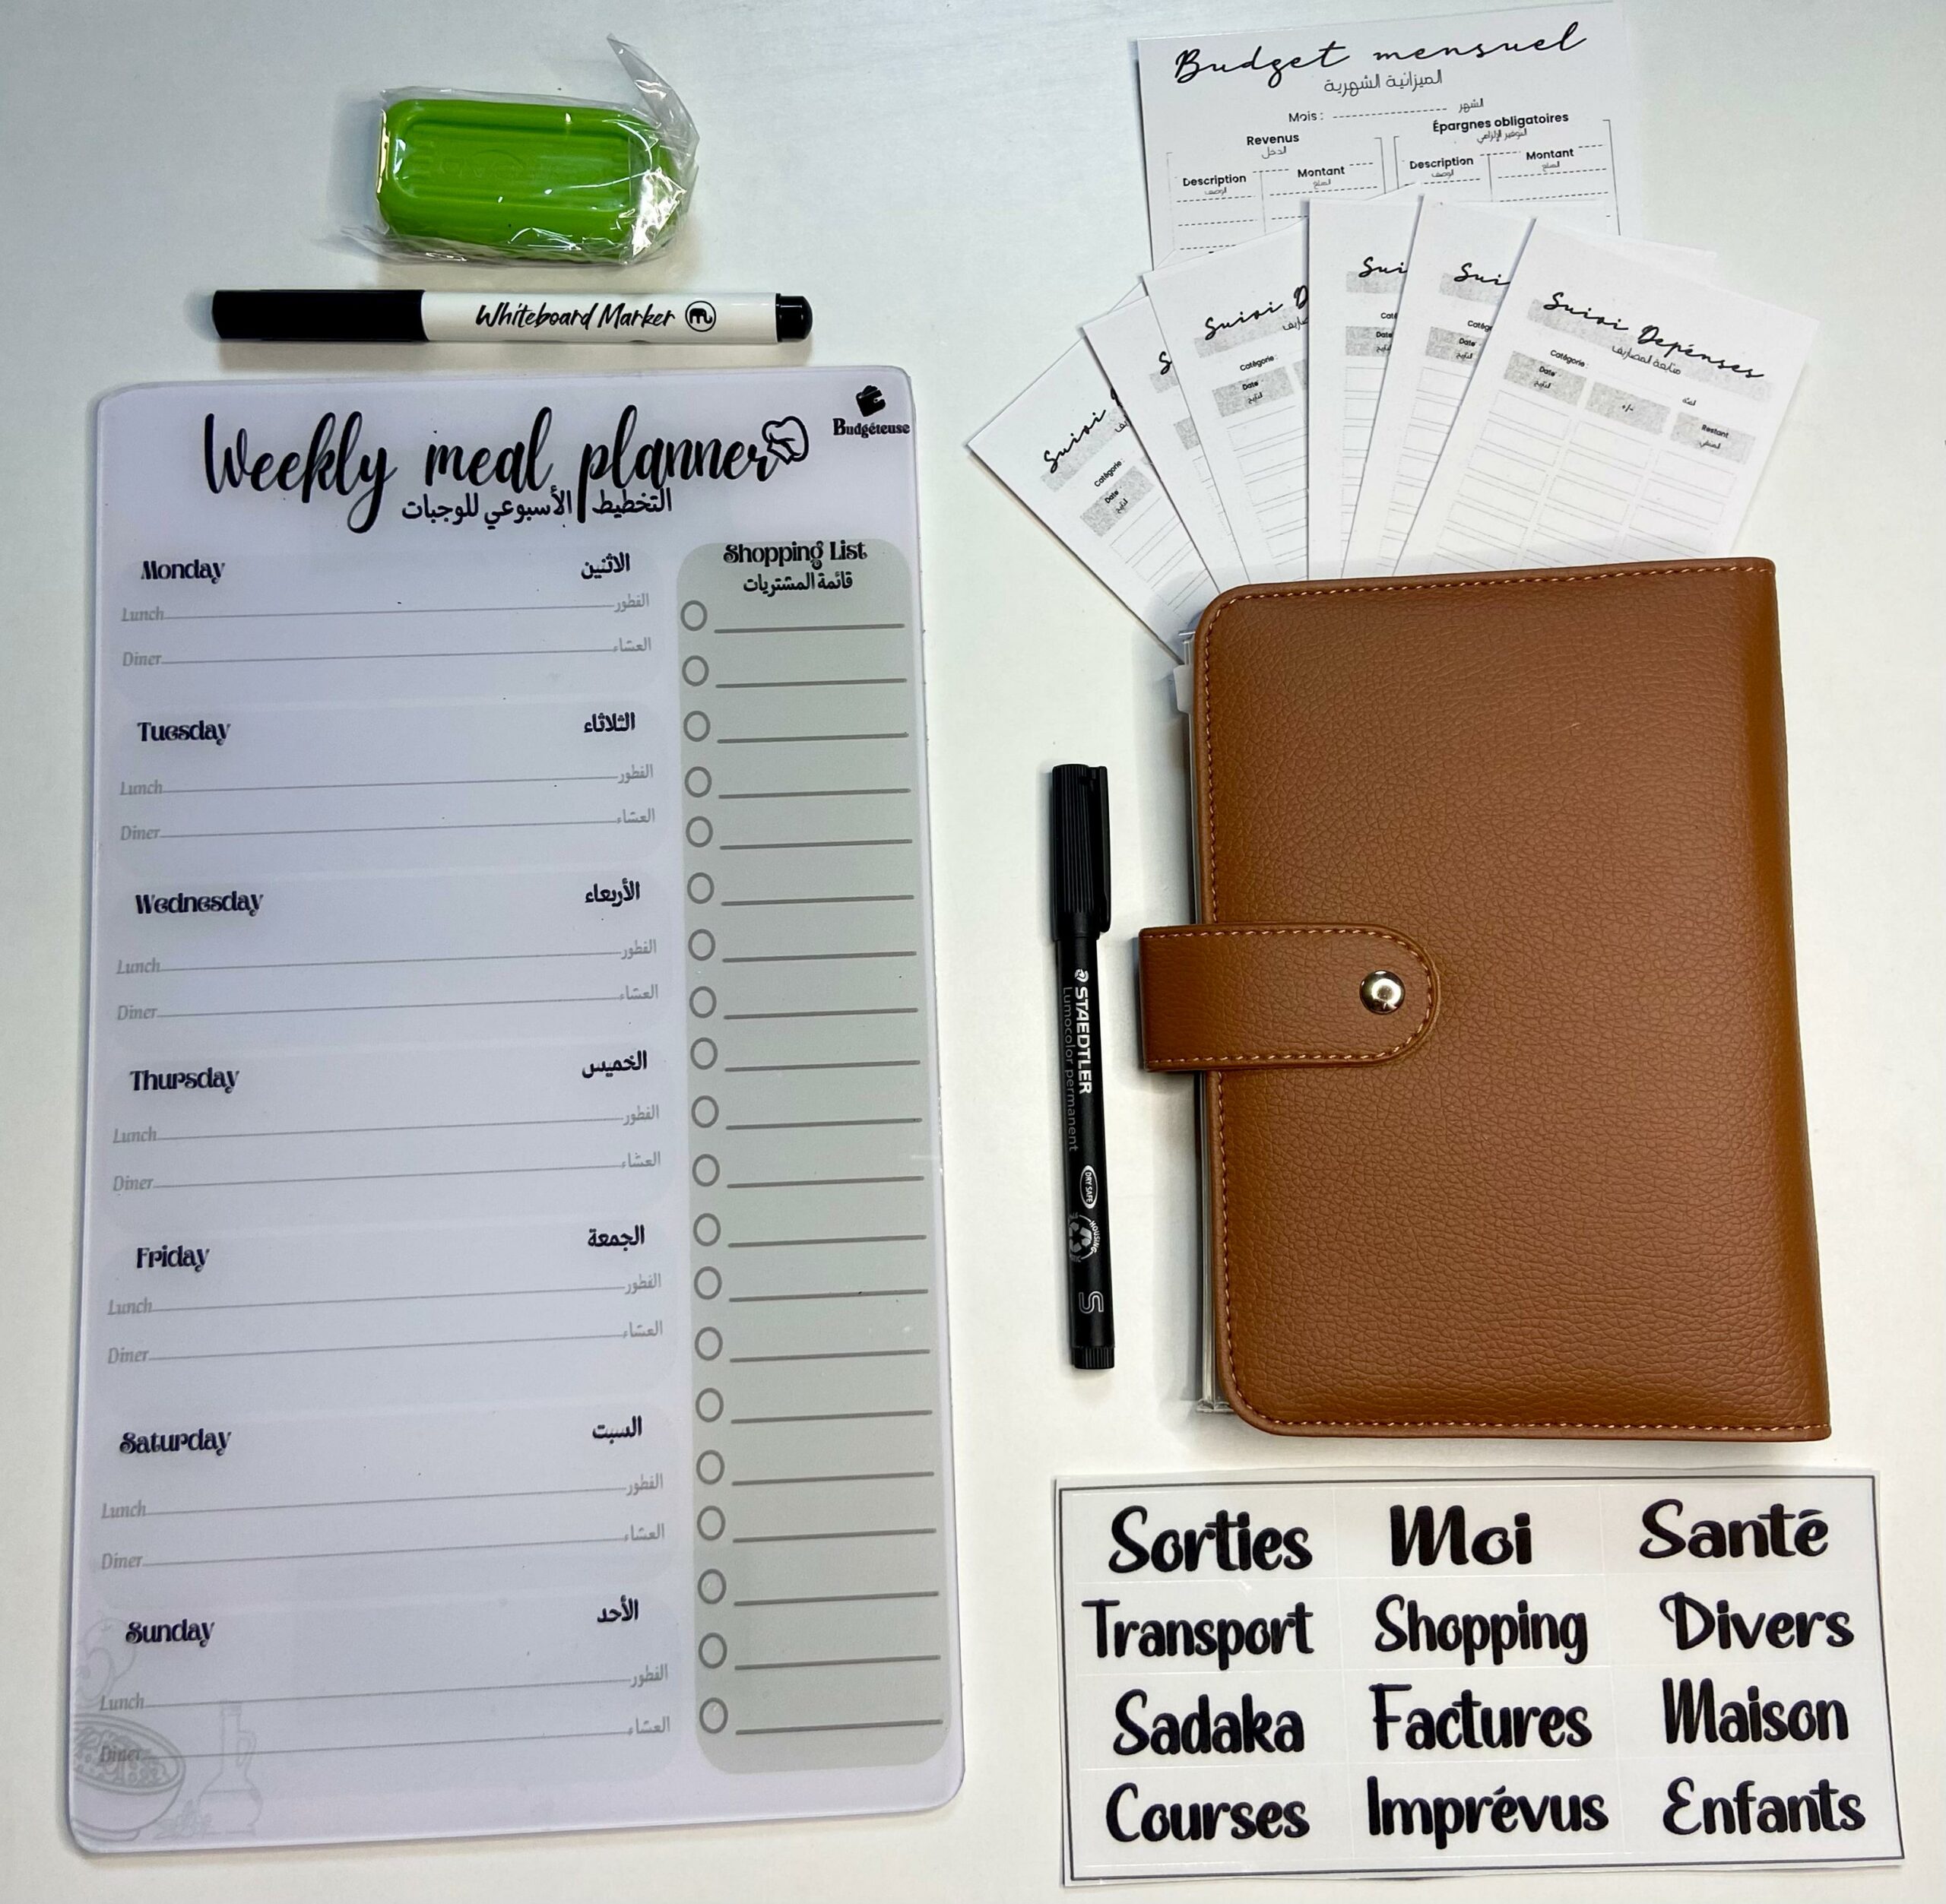 Whiteboard Marker
Budgéteuse
Weekly meal planner
التخطيط الأسبوعي للوجبات
Monday الاثنين
Lunch الفطور
Diner العشاء
Tuesday الثلاثاء
Lunch الفطور
Diner العشاء
Wednesday الأربعاء
Lunch الفطور
Diner العشاء
Thursday الخميس
Lunch الفطور
Diner العشاء
Friday الجمعة
Lunch الفطور
Diner العشاء
Saturday السبت
Lunch الفطور
Diner العشاء
Sunday الأحد
Lunch الفطور
Diner العشاء
Shopping List
قائمة المشتريات
Budget mensuel
الميزانية الشهرية
Mois : الشهر
Revenus
الدخل
Description Montant
الوصف المبلغ
Épargnes obligatoires
التوفير الإلزامي
Description Montant
الوصف المبلغ
Suivi
Catégorie :
Date
التاريخ
Suivi D
Catégorie :
Date
التاريخ
Sui
Caté
Date
التاريخ
Sui
Catég
Date
التاريخ
Suivi Depénses
متابعة المصاريف
Catégorie : الفئة
Date +/- Restant
التاريخ المتبقي
STAEDTLER
Lumocolor permanent
DRY SAFE
HOUSING
S
Sorties Moi Santé
Transport Shopping Divers
Sadaka Factures Maison
Courses Imprévus Enfants